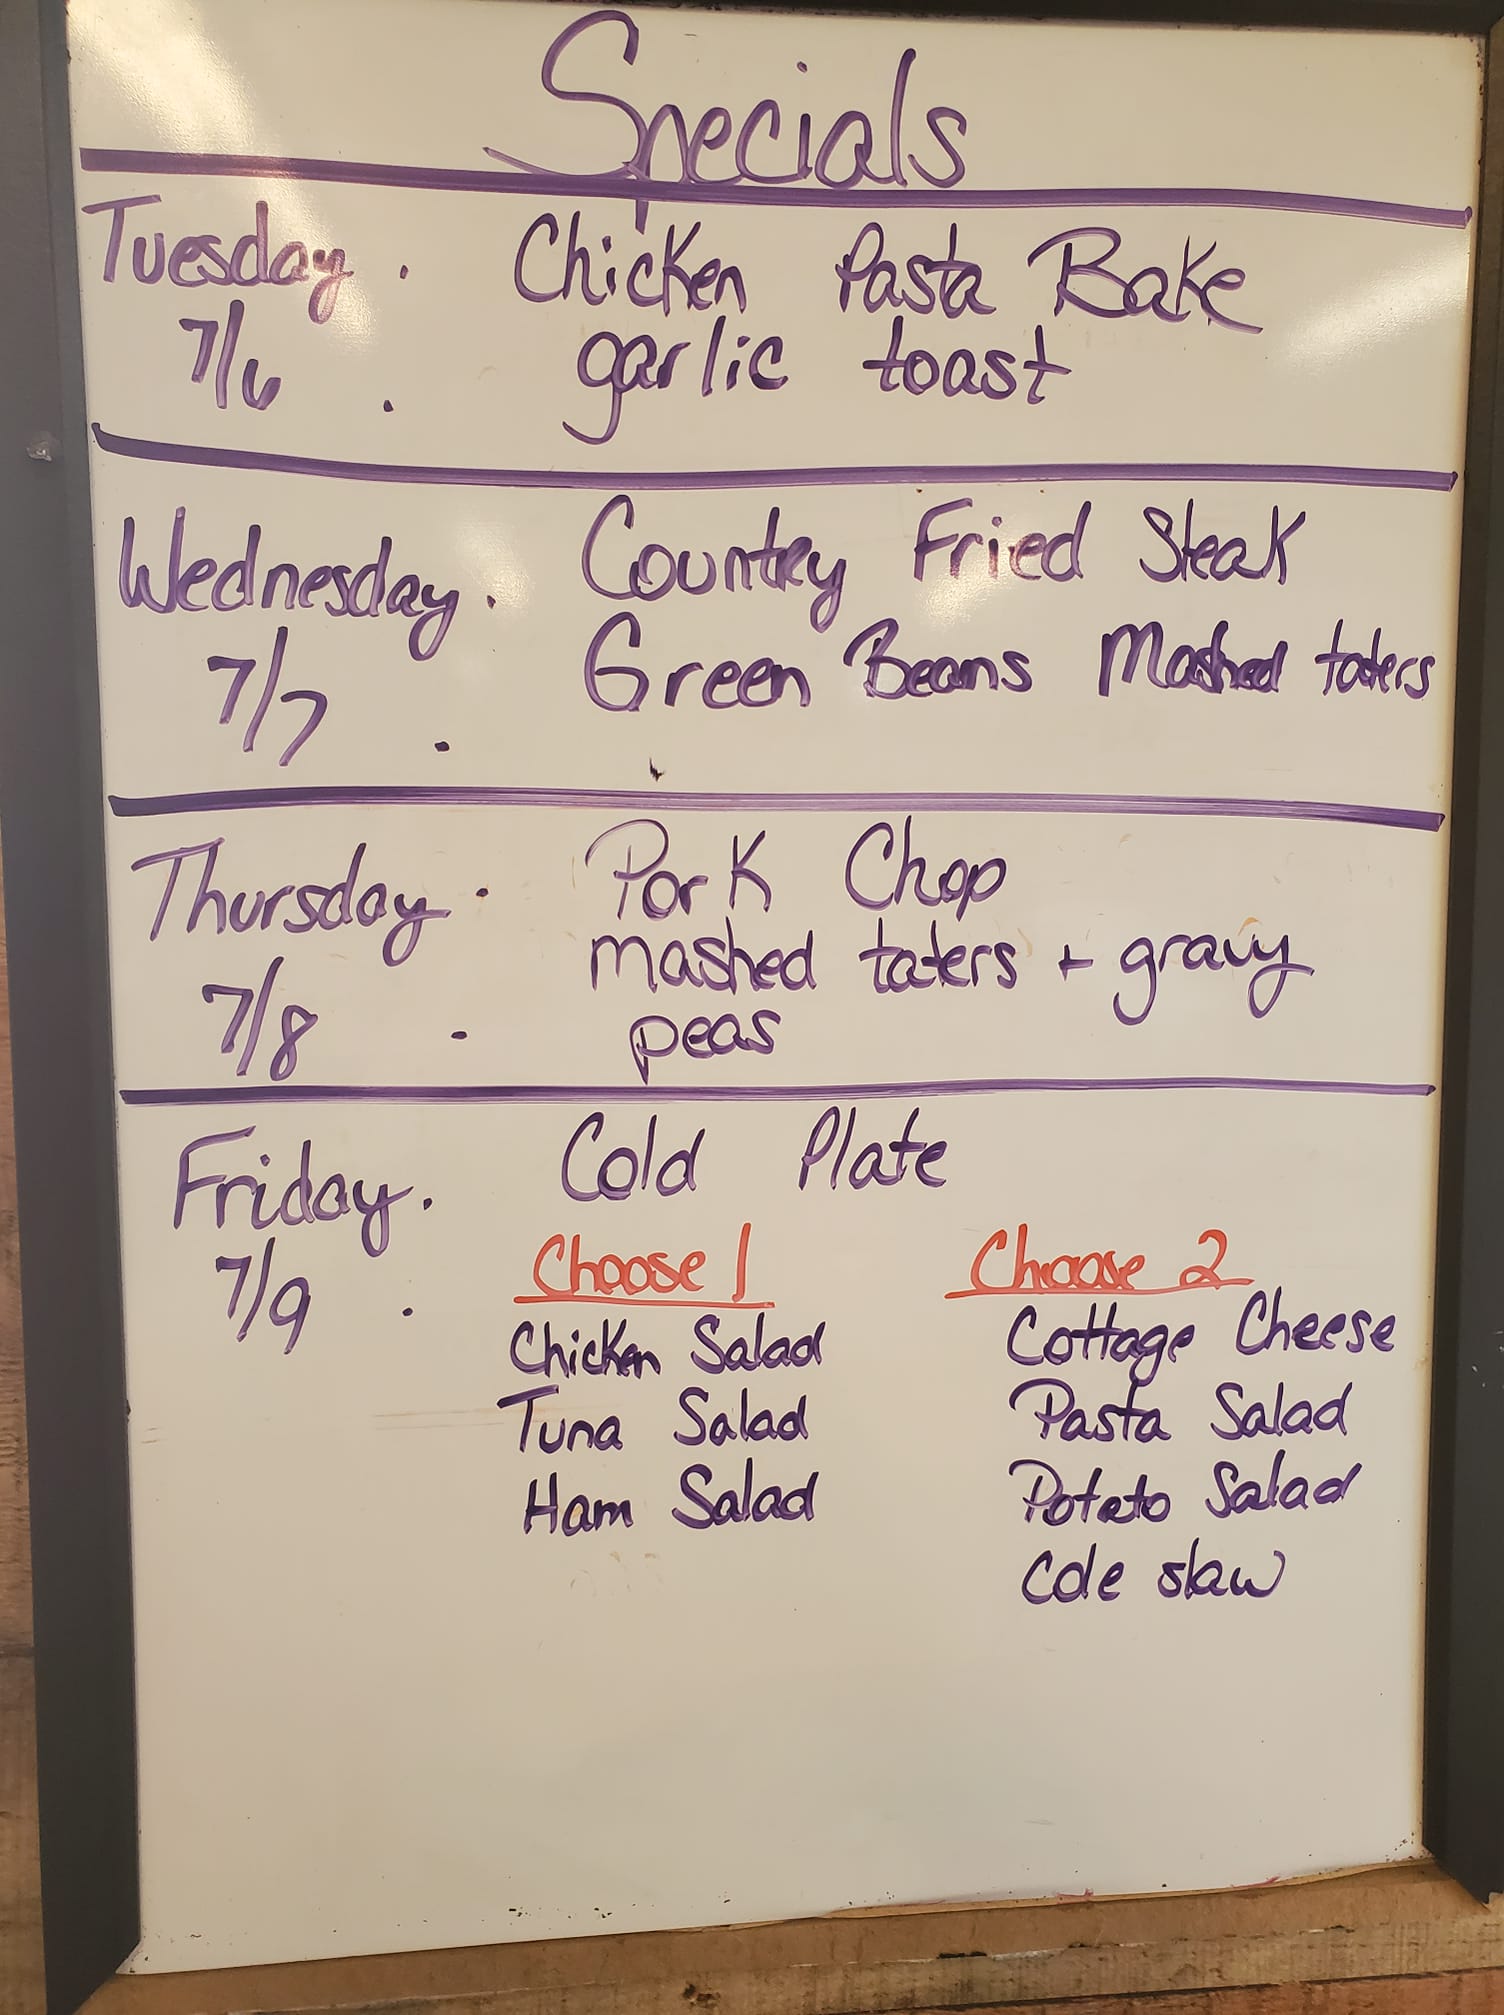 Specials
Tuesday. Chicken Pasta Bake
7/6 . garlic toast
Wednesday. Country Fried Steak
7/7 . Green Beans Mashed taters
Thursday. Pork Chop
mashed taters + gravy
7/8 . peas
Friday. Cold Plate
7/9 . Choose 1 Choose 2
Chicken Salad Cottage Cheese
Tuna Salad Pasta Salad
Ham Salad Potato Salad
Cole slaw